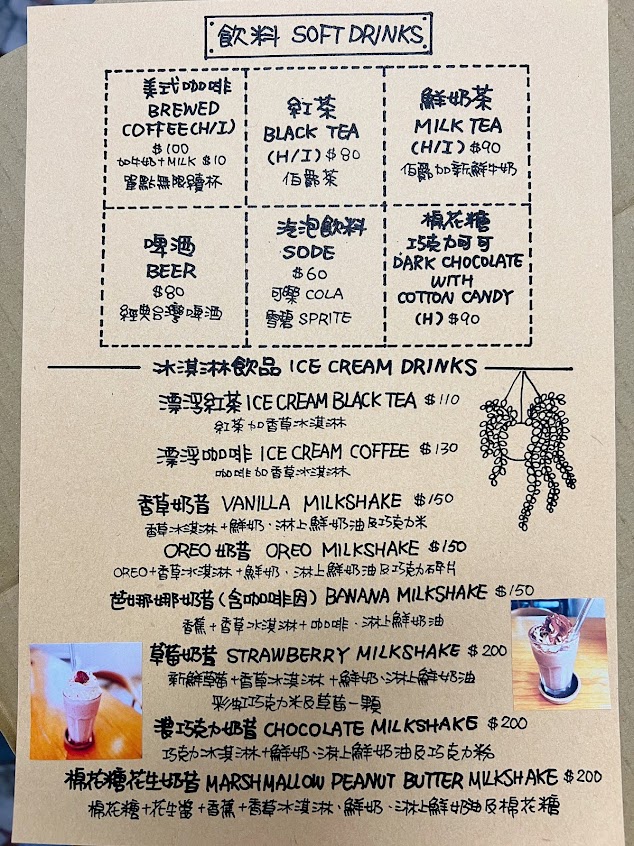 飲料 SOFT DRINKS
美式咖啡
BREWED
COFFEE(H/I)
$100
加牛奶+MILK $10
單點無限續杯
紅茶
BLACK TEA
(H/I) $80
伯爵茶
鮮奶茶
MILK TEA
(H/I) $90
伯爵加新鮮牛奶
啤酒
BEER
$80
經典台灣啤酒
汽泡飲料
SODE
$60
可樂 COLA
雪碧 SPRITE
棉花糖
巧克力可可
DARK CHOCOLATE
WITH
COTTON CANDY
(H) $90
冰淇淋飲品 ICE CREAM DRINKS
漂浮紅茶 ICE CREAM BLACK TEA $110
紅茶加香草冰淇淋
漂浮咖啡 ICE CREAM COFFEE $130
咖啡加香草冰淇淋
香草奶昔 VANILLA MILKSHAKE $150
香草冰淇淋+鮮奶、淋上鮮奶油及巧克米
OREO奶昔 OREO MILKSHAKE $150
OREO+香草冰淇淋+鮮奶、淋上鮮奶油及巧克力碎片
芭娜娜奶昔(含咖啡因) BANANA MILKSHAKE $150
香蕉+香草冰淇淋+咖啡、淋上鮮奶油
草莓奶昔 STRAWBERRY MILKSHAKE $200
新鮮草莓+香草冰淇淋+鮮奶、淋上鮮奶油
彩虹巧克力米及草莓一顆
濃巧克力奶昔 CHOCOLATE MILKSHAKE $200
巧克力冰淇淋+鮮奶、淋上鮮奶油及巧克力粉
棉花糖花生奶昔 MARSHMALLOW PEANUT BUTTER MILKSHAKE $200
棉花糖+花生醬+香蕉+香草冰淇淋、鮮奶、淋上鮮奶油及棉花糖